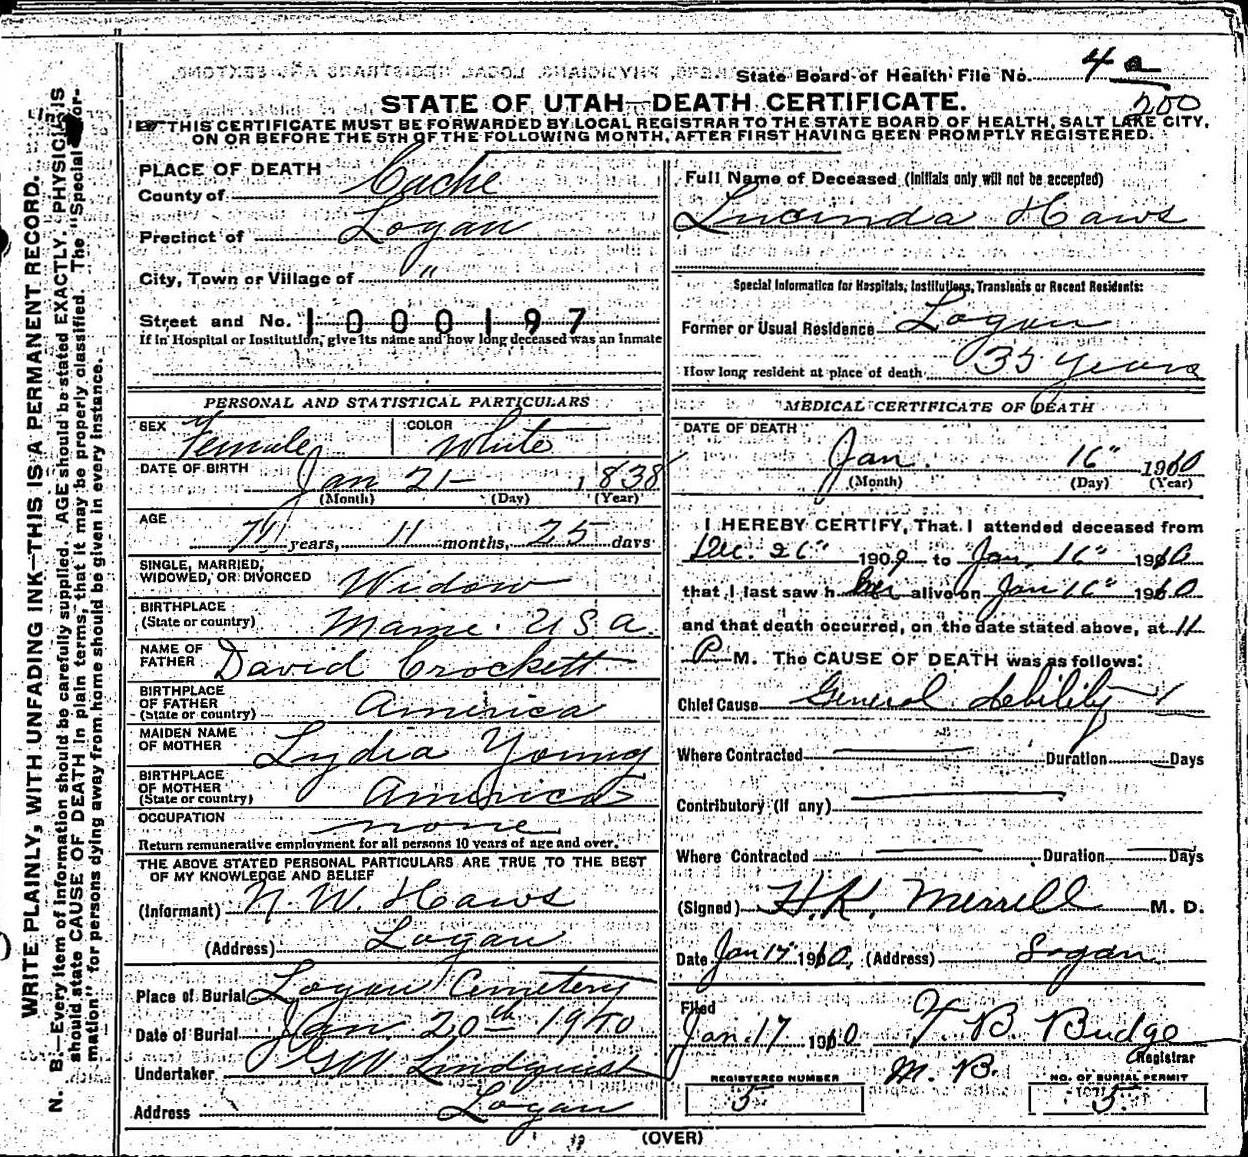 State Board of Health File No. 4 a
200
STATE OF UTAH—DEATH CERTIFICATE.
THIS CERTIFICATE MUST BE FORWARDED BY LOCAL REGISTRAR TO THE STATE BOARD OF HEALTH, SALT LAKE CITY,
ON OR BEFORE THE 5TH OF THE FOLLOWING MONTH, AFTER FIRST HAVING BEEN PROMPTLY REGISTERED.
WRITE PLAINLY, WITH UNFADING INK—THIS IS A PERMANENT RECORD.
N. B.—Every item of information should be carefully supplied. AGE should be stated EXACTLY. PHYSICIANS
should state CAUSE OF DEATH in plain terms, that it may be properly classified. The "Special Infor-
mation" for persons dying away from home should be given in every instance.
PLACE OF DEATH
County of Cache
Precinct of Logan
City, Town or Village of "
Street and No. 1000197
If in Hospital or Institution, give its name and how long deceased was an Inmate
PERSONAL AND STATISTICAL PARTICULARS
SEX Female COLOR White
DATE OF BIRTH
Jan 21— 1838
(Month) (Day) (Year)
AGE
71 years, 11 months, 25 days
SINGLE, MARRIED,
WIDOWED, OR DIVORCED Widow
BIRTHPLACE
(State or country) Maine. U S A.
NAME OF
FATHER David Crockett
BIRTHPLACE
OF FATHER
(State or country) America
MAIDEN NAME
OF MOTHER Lydia Young
BIRTHPLACE
OF MOTHER
(State or country) America
OCCUPATION none
Return remunerative employment for all persons 10 years of age and over.
THE ABOVE STATED PERSONAL PARTICULARS ARE TRUE TO THE BEST
OF MY KNOWLEDGE AND BELIEF
(Informant) N. W. Haws
(Address) Logan
Place of Burial Logan Cemetery
Date of Burial Jan. 20th 1910
Undertaker G W Lindquist
Address Logan
Full Name of Deceased (Initials only will not be accepted)
Lucinda Haws
Special Information for Hospitals, Institutions, Transients or Recent Residents:
Former or Usual Residence Logan
How long resident at place of death 35 years
MEDICAL CERTIFICATE OF DEATH
DATE OF DEATH
Jan. 16" 1910
(Month) (Day) (Year)
I HEREBY CERTIFY, That I attended deceased from
Dec. 26" 1909 to Jan. 16" 1910
that I last saw her alive on Jan 16" 1910
and that death occurred, on the date stated above, at 11
P M. The CAUSE OF DEATH was as follows:
Chief Cause General debility
Where Contracted Duration Days
Contributory (if any)
Where Contracted Duration Days
(Signed) H. K. Merrill M. D.
Date Jan 17" 1910, (Address) Logan
Filed
Jan. 17 1910 T. B. Budge
Registrar
M. B.
REGISTERED NUMBER
5
NO. OF BURIAL PERMIT
5
(OVER)